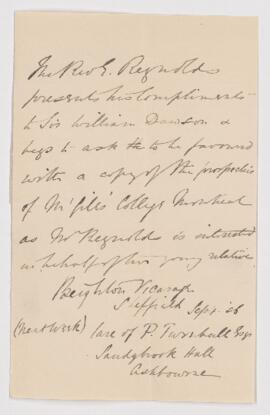 The Rev E. Reynolds
presents his compliments
to Sir William Dawson &
begs to ask to be favoured
with a copy of the prospectus
of McGill College Montreal
as Mr Reynolds is interested
on behalf of his young relative
Beighton Vicarage
Sheffield Sept. 26
(next week) Care of P. Turnbull Esqr
Sandybrook Hall
Ashbourne